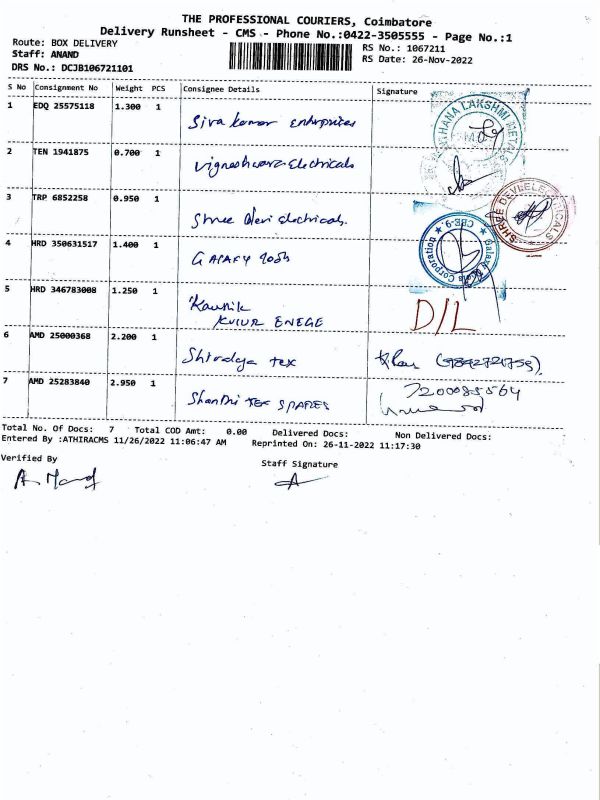 THE PROFESSIONAL COURIERS, Coimbatore
Delivery Runsheet - CMS - Phone No.:0422-3505555 - Page No.:1
Route: BOX DELIVERY
Staff: ANAND
DRS No.: DCJB106721101
RS No.: 1067211
RS Date: 26-Nov-2022
S No Consignment No Weight PCS Consignee Details Signature
1 EDQ 25575118 1.300 1 Siva kumar Enterprises
2 TEN 1941875 0.700 1 Vigneshwara Electricals
3 TRP 6852258 0.950 1 Shree Devi Electricals.
4 HRD 350631517 1.400 1
5 HRD 346783008 1.250 1 D/L
6 AMD 25000368 2.200 1 Tex
7 AMD 25283840 2.950 1 Shanthi TEX SPARES
7200085564
LAKSHMI METAL
SHREE DEVI ELECTRICALS
Corporation
CBE-9
Total No. Of Docs: 7 Total COD Amt: 0.00 Delivered Docs: Non Delivered Docs:
Entered By :ATHIRACMS 11/26/2022 11:06:47 AM Reprinted On: 26-11-2022 11:17:30
Verified By
Staff Signature